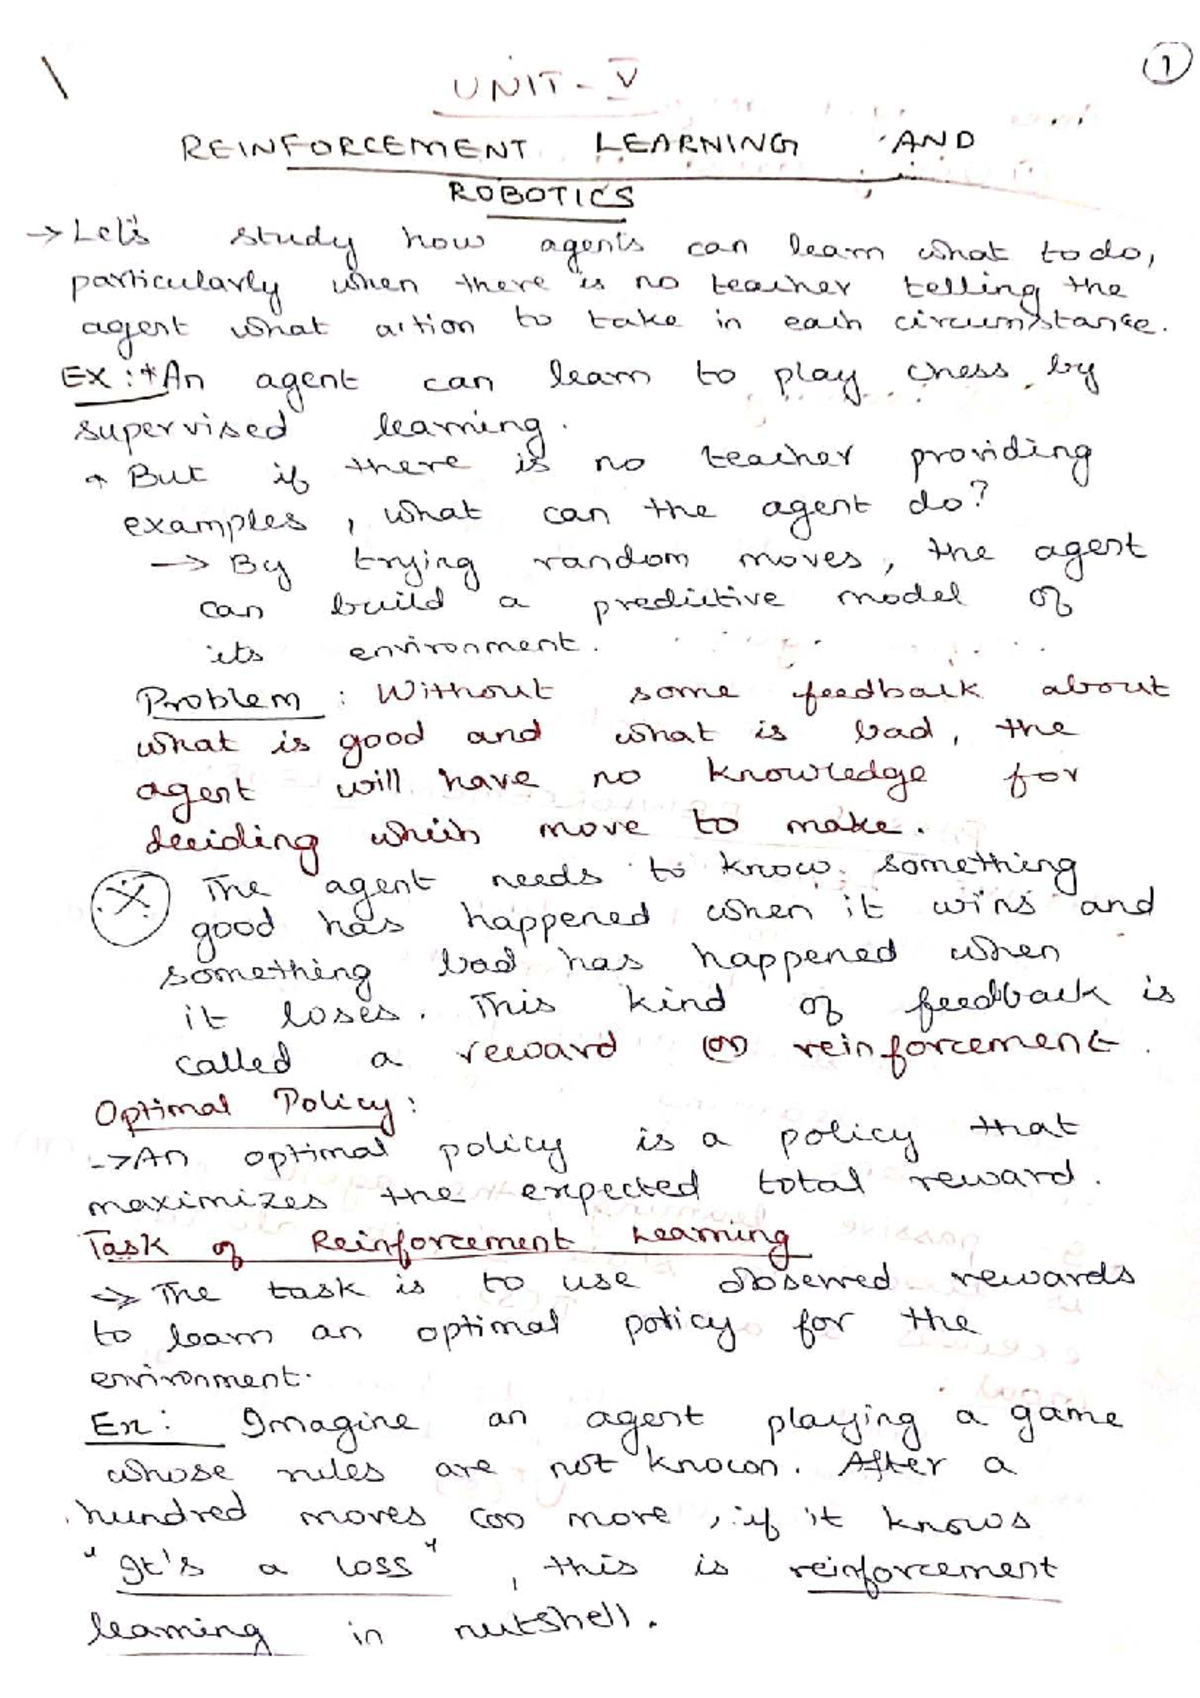 1
UNIT - V
REINFORCEMENT LEARNING AND
ROBOTICS
→ Let's study how agents can learn what to do,
particularly when there is no teacher telling the
agent what action to take in each circumstance.
Ex : * An agent can learn to play chess by
supervised learning.
* But if there is no teacher providing
examples, what can the agent do?
→ By trying random moves, the agent
can build a predictive model of
its environment.
Problem : Without some feedback about
what is good and what is bad, the
agent will have no knowledge for
deciding which move to make.
The agent needs to know something
good has happened when it wins and
something bad has happened when
it loses. This kind of feedback is
called a reward (or) reinforcement.
Optimal Policy :
→ An optimal policy is a policy that
maximizes the expected total reward.
Task of Reinforcement Learning
→ The task is to use observed rewards
to learn an optimal policy for the
environment.
Ex : Imagine an agent playing a game
whose rules are not known. After a
hundred moves (or) more, if it knows
"It's a loss", this is reinforcement
learning in nutshell.